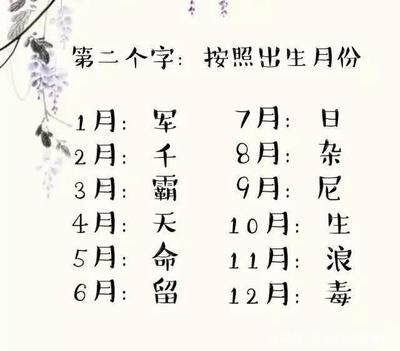 第二个字：按照出生月份
1月：军
7月：日
2月：千
8月：杂
3月：霸
9月：尼
4月：天
10月：生
5月：命
11月：浪
6月：留
12月：毒